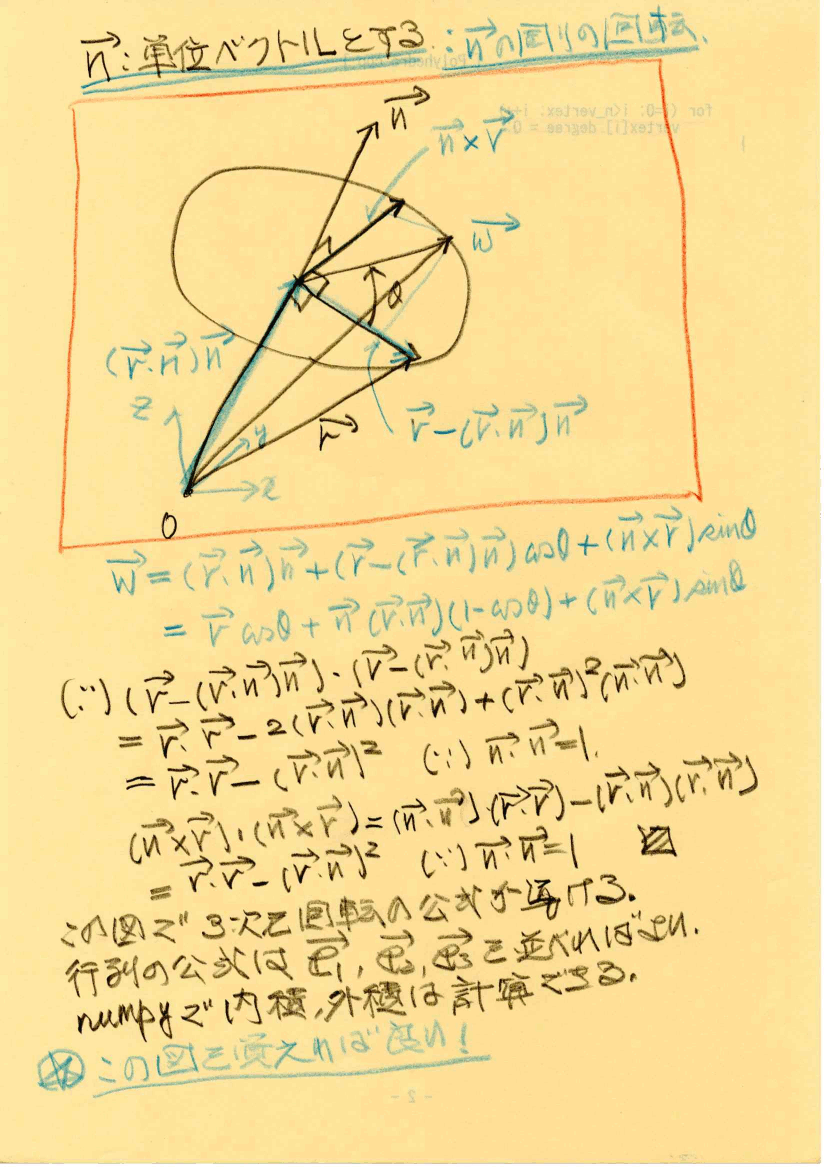 n→:単位ベクトルとする :n→の回りの回転.
n→
n→×r→
w→
θ
(r→·n→)n→
z
y
x
r→
r→-(r→·n→)n→
O
w→=(r→·n→)n→+(r→-(r→·n→)n→)cosθ+(n→×r→)sinθ
= r→cosθ+n→(r→·n→)(1-cosθ)+(n→×r→)sinθ
(∵) (r→-(r→·n→)n→)·(r→-(r→·n→)n→)
= r→·r→-2(r→·n→)(r→·n→)+(r→·n→)²(n→·n→)
= r→·r→-(r→·n→)² (∵) n→·n→=1.
(n→×r→)·(n→×r→)=(n→·n→)·(r→·r→)-(r→·n→)(r→·n→)
= r→·r→-(r→·n→)² (∵) n→·n→=1
この図で3次元回転の公式が導ける.
行列の公式は e→₁, e→₂, e→₃を並べればよい.
numpyで内積,外積は計算できる.
この図を覚えれば良い!